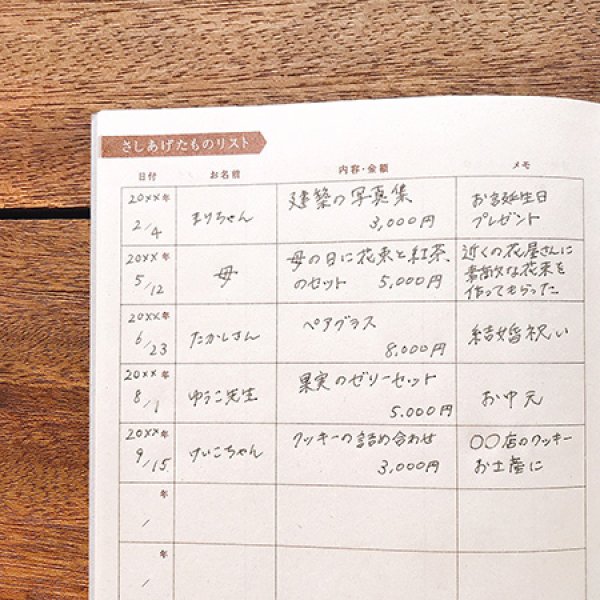 さしあげたものリスト
日付 お名前 内容・金額 メモ
20××年 2/4 まりちゃん 建築の写真集 3,000円 お誕生日プレゼント
20××年 5/12 母 母の日に花束と紅茶のセット 5,000円 近くの花屋さんに素敵な花束を作ってもらった。
20××年 6/23 たかしさん ペアグラス 8,000円 結婚祝い
20××年 8/1 ゆうこ先生 果実のゼリーセット 5,000円 お中元
20××年 9/15 けいこちゃん クッキーの詰め合わせ 3,000円 〇〇店のクッキーお土産に
年 /
年 /